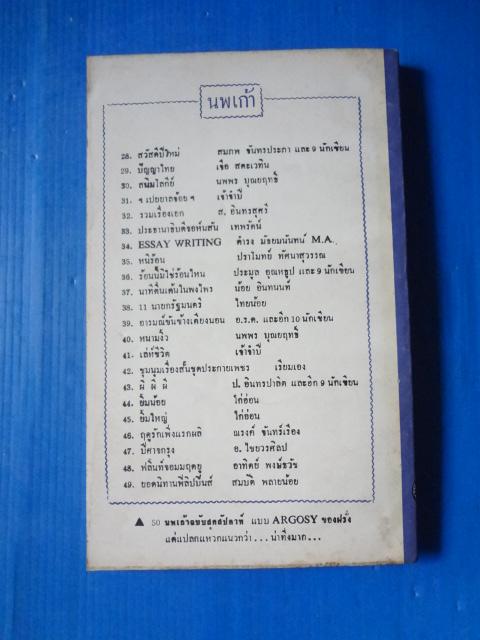 นพเก้า
28. สวัสดีปีใหม่ สมภพ จันทรประภา และ 9 นักเขียน
29. ปัญญาไทย เชือ สตะเวทิน
30. สนิมโลกีย์ นพพร บุณยฤทธิ์
31. ฯ เปยยาลน้อย ฯ เจ้าจำปี
32. รวมเรื่องเอก ส. อินทรสุครี
33. ประธานาธิบดีจอห์นสัน เทพรัตน์
34. ESSAY WRITING ดำรง มัธยมนันทน์ M.A.
35. หนีร้อน ปราโมทย์ ทัศนาสุวรรณ
36. ร้อนนี้มิใช่ร้อนไหน ประมูล อุณหธูป และ 9 นักเขียน
37. นาทีตื่นเต้นในพงไพร น้อย อินทนนท์
38. 11 นายกรัฐมนตรี ไทยน้อย
39. อารมณ์ขันข้างเตียงนอน อ.ร.ด. และอีก 10 นักเขียน
40. หนามงิ้ว นพพร บุณยฤทธิ์
41. เล่ห์ชีวิต เจ้าจำปี
42. ชุมนุมเรื่องสั้นชุดประกายเพชร เรียมเอง
43. ผี ผี ผี ป. อินทรปาลิต และอีก 9 นักเขียน
44. ยิ้มน้อย ไก่อ่อน
45. ยิ้มใหญ่ ไก่อ่อน
46. ฤดูรักเพิ่งแรกผลิ ณรงค์ จันทร์เรือง
47. ปีศาจกรุง อ. ไชยวรศิลป
48. ฟลินท์จอมมฤตยู อาทิตย์ พงษ์ธวัช
49. ยอดนิทานฟิลิปปินส์ สมบัติ พลายน้อย
▲ 50 นพเก้าฉบับสุดสัปดาห์ แบบ ARGOSY ของฝรั่ง
แต่แปลกแหวกแนวกว่า . . . น่าทึ่งมาก . . .